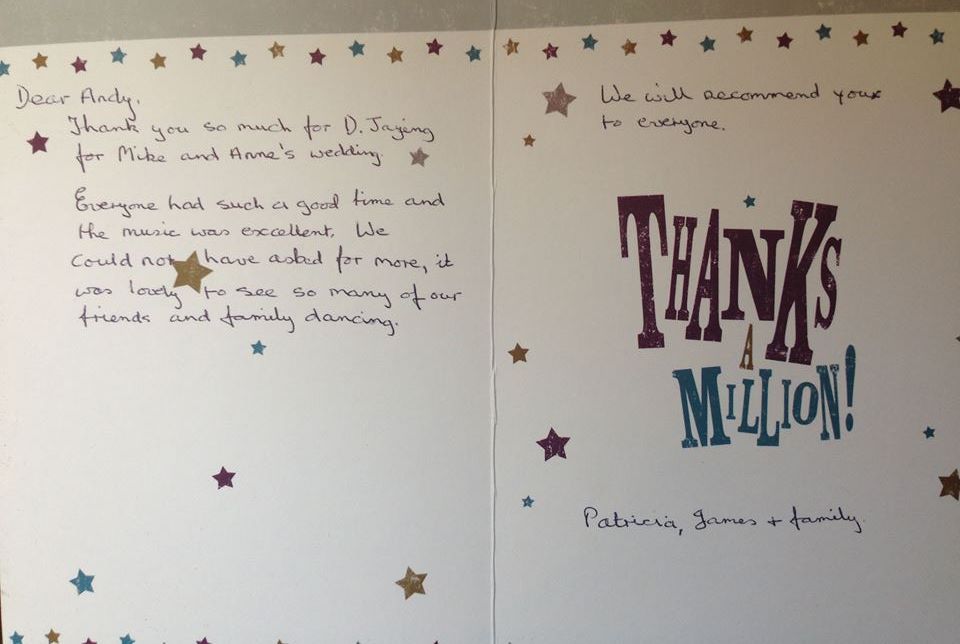 Dear Andy,
Thank you so much for D. Jayeing
for Mike and Anne's wedding.
Everyone had such a good time and
the music was excellent. We
could not have asked for more, it
was lovely to see so many of our
friends and family dancing.
We will recommend you
to everyone.
THANKS
A
MILLION!
Patricia, James + family.